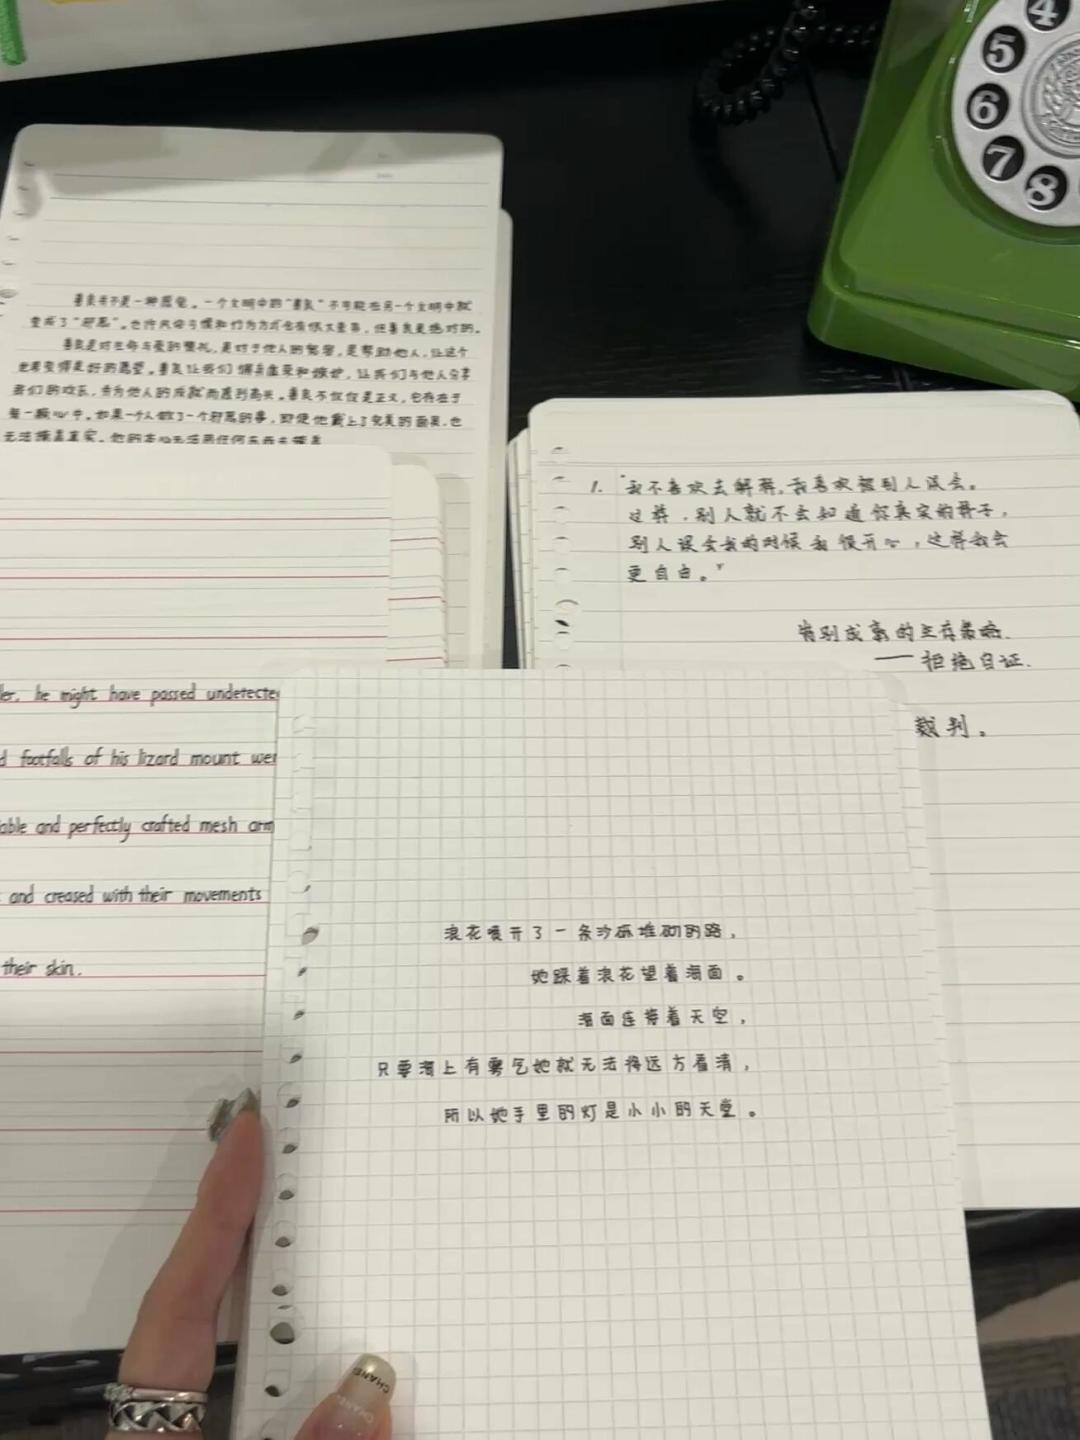 4
5
6
7
8
善良并不是一种愿望。一个文明中的“善良”不可能在另一个文明中就
变成了“邪恶”。也许风俗习惯和行为方式会有很大差异,但善良是绝对的。
善良是对生命与爱的赞礼,是对于他人的宽容,是帮助他人,让这个
世界变得美好的愿望。善良让我们摒弃虚荣和嫉妒,让我们与他人分享
我们的欢乐,并为他人的成就而感到高兴。善良不仅仅是正义,它存在于
每一颗心中。如果一个人做了一个邪恶的事,即使他戴上了完美的面具,也
无法掩盖真实。他的本心无法用任何东西去掩盖
1. “我不喜欢去解释,我喜欢被别人误会。
这样,别人就不会知道你真实的样子,
别人误会我的时候我很开心,这样我会
更自由。”
特别成熟的生存策略.
——拒绝自证.
裁判。
ler, he might have passed undetecte
d footfalls of his lizard mount wer
able and perfectly crafted mesh arm
and creased with their movements
their skin.
浪花喷开了一条沙砾堆砌的路,
她踩着浪花望着海面。
海面连接着天空,
只要海上有雾气她就无法将远方看清,
所以她手里的灯是小小的天堂。
CHANEL